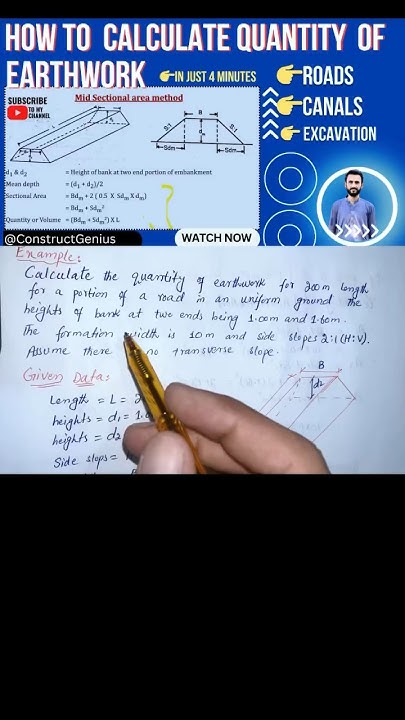 HOW TO CALCULATE QUANTITY OF
EARTHWORK 👉IN JUST 4 MINUTES
👉ROADS
👉CANALS
👉EXCAVATION
SUBSCRIBE
TO MY
CHANNEL
Mid Sectional area method
B
S:1
S:1
d
Sdm
Sdm
d1 & d2 = Height of bank at two end portion of embankment
Mean depth = (d1 + d2)/2
Sectional Area = Bdm + 2 ( 0.5 X Sdm X dm)
= Bdm + Sdm²
Quantity or Volume = (Bdm + Sdm²) X L
?
@ConstructGenius
WATCH NOW
Example:
Calculate the quantity of earthwork for 200m length
for a portion of a road in an uniform ground the
heights of bank at two ends being 1.00m and 1.60m.
The formation width is 10m and side slopes 2:1 (H:V).
Assume there no transverse slope.
Given Data:
Length = L = 2
heights = d1 = 1.0
heights = d2
Side slops =
B
d2